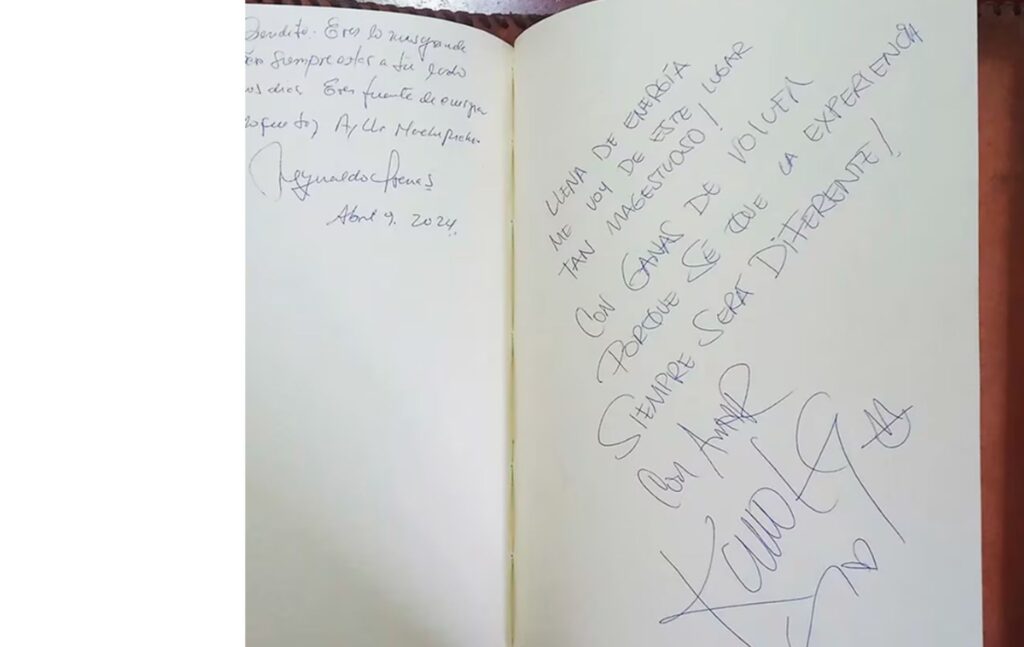 Bendito. Eres lo mas grande
siempre estar a tu lado
Eres fuente de energia
Ayllu Machupicchu
Reynaldo Arenas
Abril 9. 2024.
LLENA DE ENERGÍA
ME VOY DE ESTE LUGAR
TAN MAGESTUOSO!
CON GANAS DE VOLVER
PORQUE SÉ QUE LA EXPERIENCIA
SIEMPRE SERÁ DIFERENTE!
CON AMOR
KAROL G